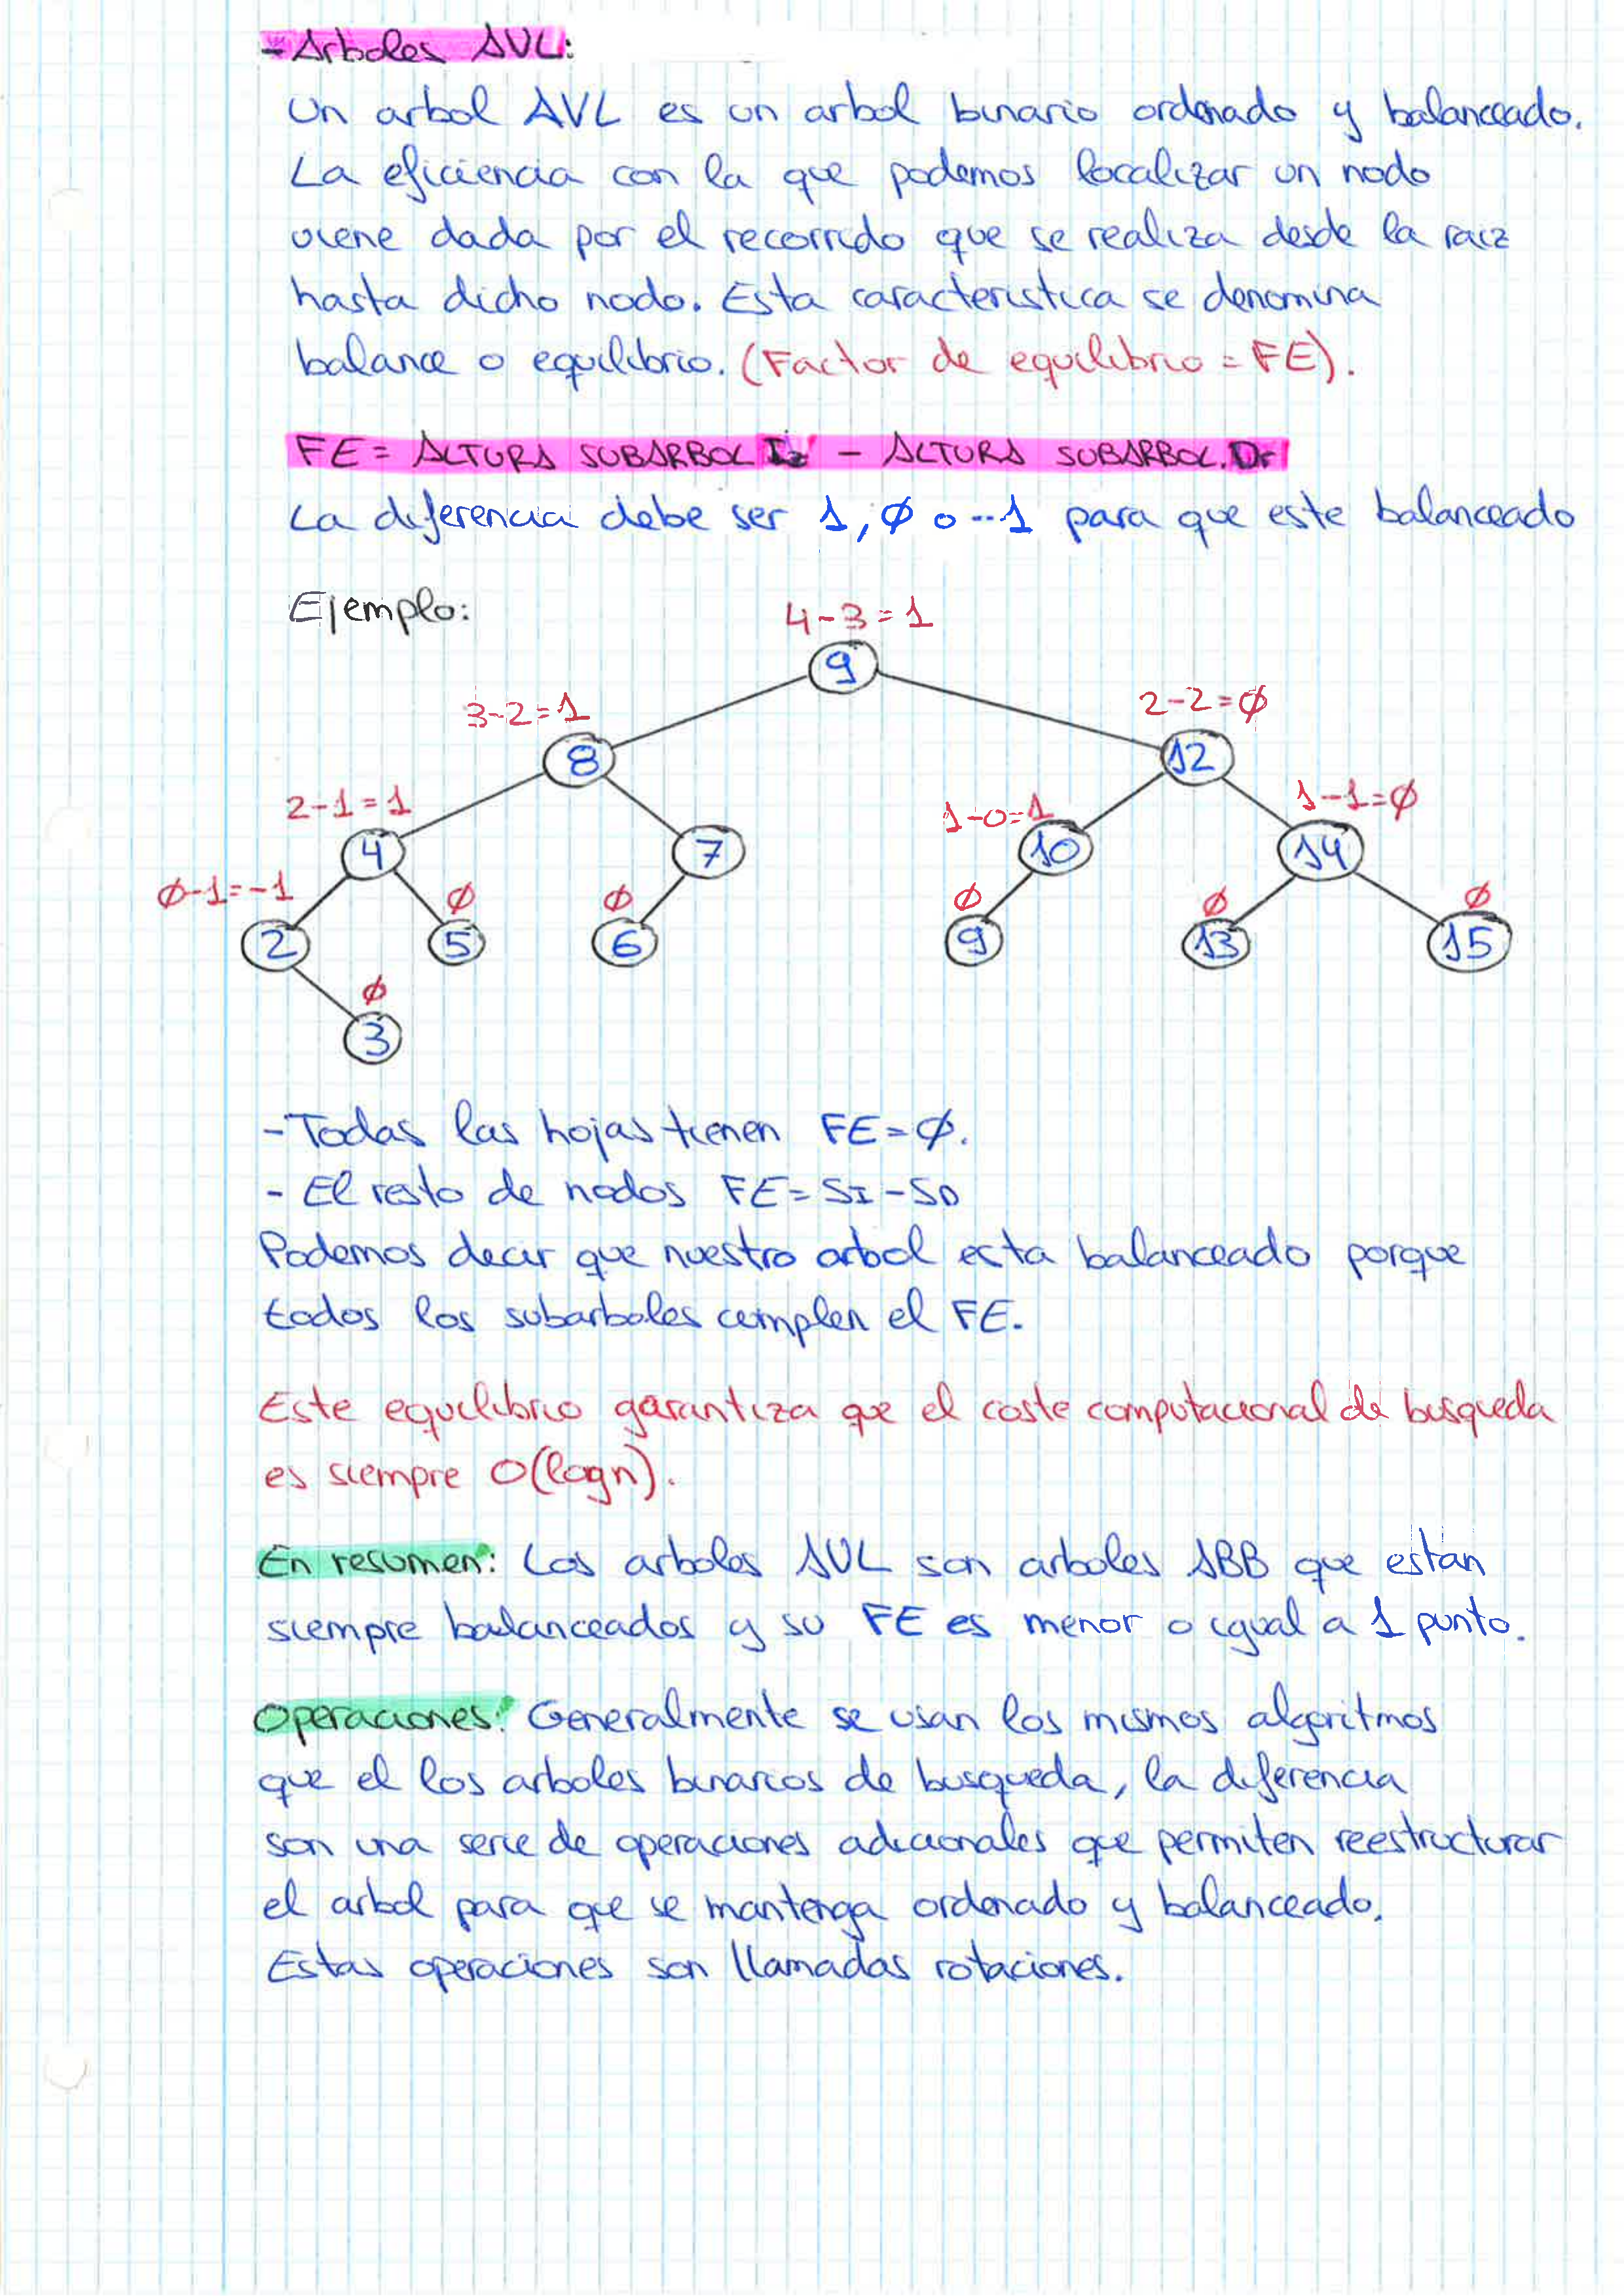 - Arboles AVL:
Un arbol AVL es un arbol binario ordenado y balanceado.
La eficiencia con la que podemos localizar un nodo
viene dada por el recorrido que se realiza desde la raiz
hasta dicho nodo. Esta caracteristica se denomina
balance o equilibrio. (Factor de equilibrio = FE).
FE = ALTURA SUBARBOL Iz - ALTURA SUBARBOL. Dr
La diferencia debe ser 1, Ø o -1 para que este balanceado
Ejemplo:
4-3=1
9
3-2=1 2-2=Ø
8 12
2-1=1 1-0=1 1-1=Ø
4 7 10 14
Ø-1=-1 Ø Ø Ø Ø Ø
2 5 6 9 13 15
Ø
3
- Todas las hojas tienen FE=Ø.
- El resto de nodos FE=SI-SD
Podemos decir que nuestro arbol esta balanceado porque
todos los subarboles cumplen el FE.
Este equilibrio garantiza que el coste computacional de busqueda
es siempre O(logn).
En resumen: Los arboles AVL son arboles ABB que estan
siempre balanceados y su FE es menor o igual a 1 punto.
Operaciones: Generalmente se usan los mismos algoritmos
que el los arboles binarios de busqueda, la diferencia
son una serie de operaciones adicionales que permiten reestructurar
el arbol para que se mantenga ordenado y balanceado.
Estas operaciones son llamadas rotaciones.